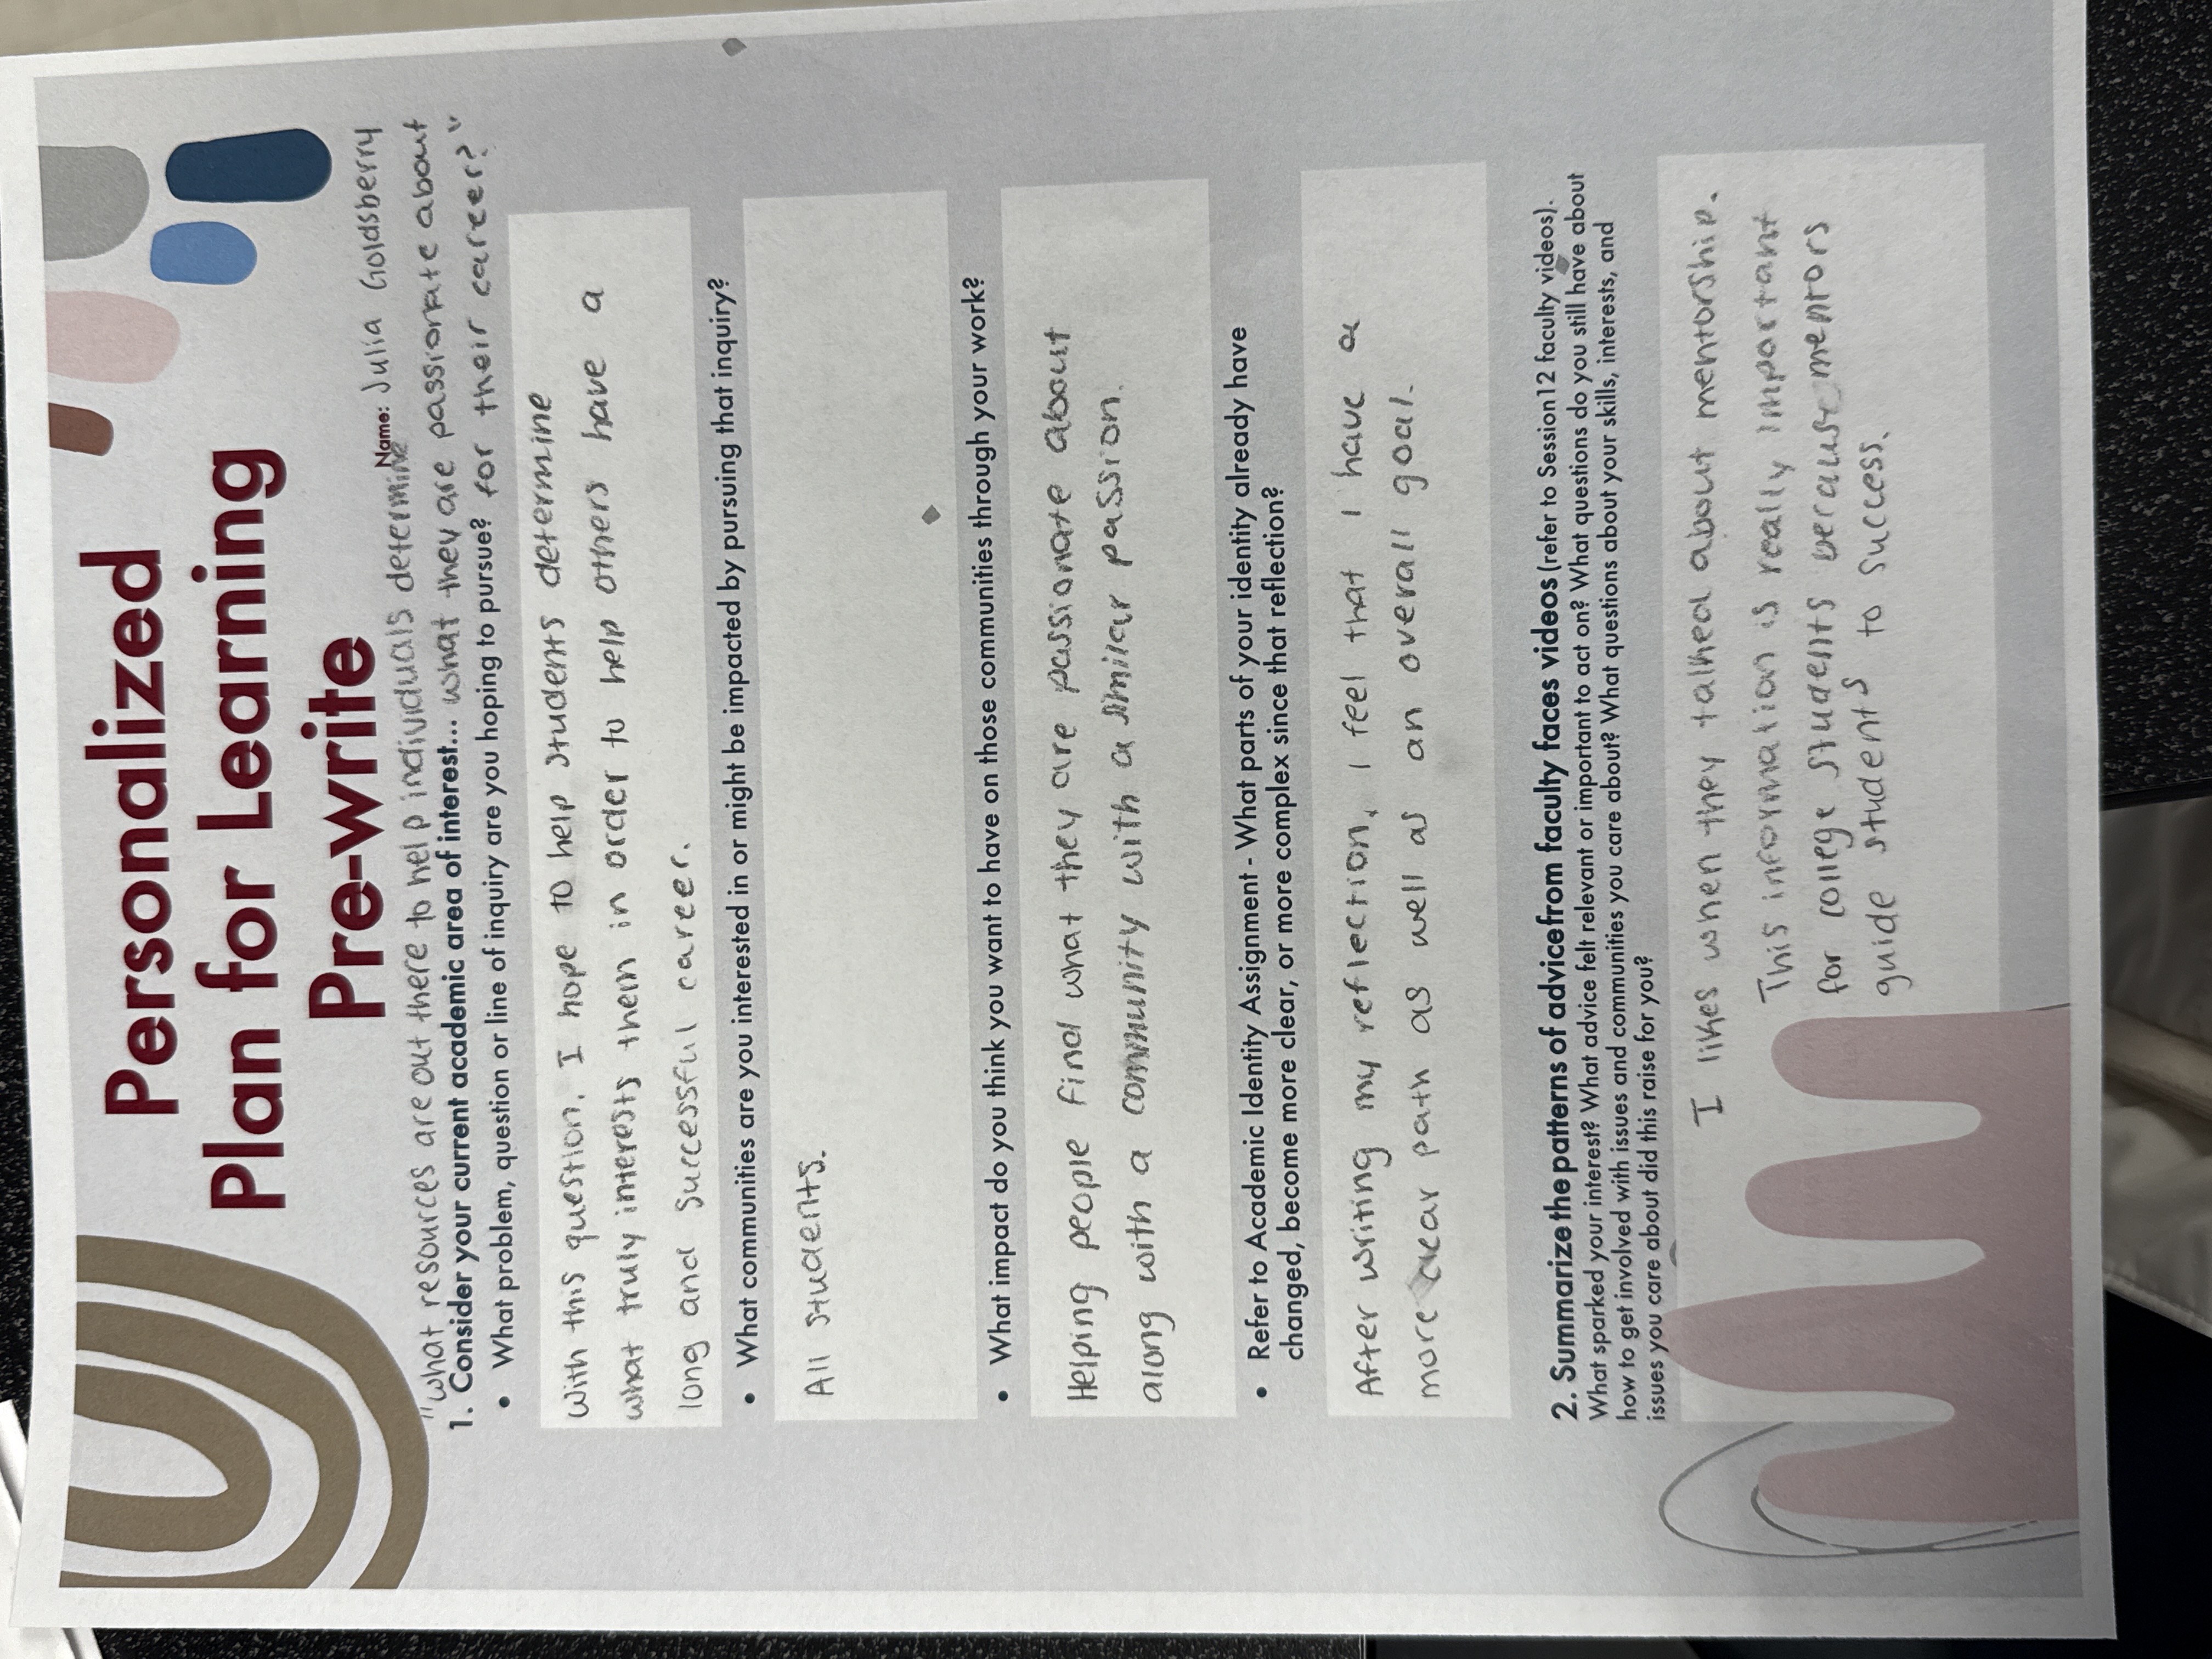 Personalized
Plan for Learning
Pre-write
Name: Julia Goldsberry
"what resources are out there to help individuals determine
1. Consider your current academic area of interest... what they are passionate about
• What problem, question or line of inquiry are you hoping to pursue? for their career?"
With this question, I hope to help students determine
what truly interests them in order to help others have a
long and successful career.
• What communities are you interested in or might be impacted by pursuing that inquiry?
All students.
• What impact do you think you want to have on those communities through your work?
Helping people find what they are passionate about
along with a community with a similar passion.
• Refer to Academic Identity Assignment - What parts of your identity already have
changed, become more clear, or more complex since that reflection?
After writing my reflection, I feel that I have a
more clear path as well as an overall goal.
2. Summarize the patterns of advice from faculty faces videos (refer to Session 12 faculty videos).
What sparked your interest? What advice felt relevant or important to act on? What questions do you still have about
how to get involved with issues and communities you care about? What questions about your skills, interests, and
issues you care about did this raise for you?
I likes when they talked about mentorship.
This information is really important
for college students because mentors
guide students to success.